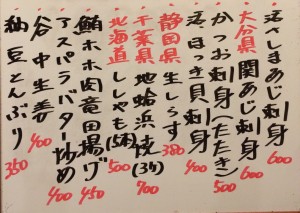 活さしまあじ刺身 600
大分県 関あじ刺身 600
かつお刺身(たたき) 500
活ほっき貝刺身 400
静岡県 生しらす 380
千葉県 地蛤浜焼(3ケ) 700
北海道 ししゃも(5本) 500
鮪ホホ肉竜田揚げ 450
アスパラバター炒め 400
谷中生姜 400
納豆とんぶり 350